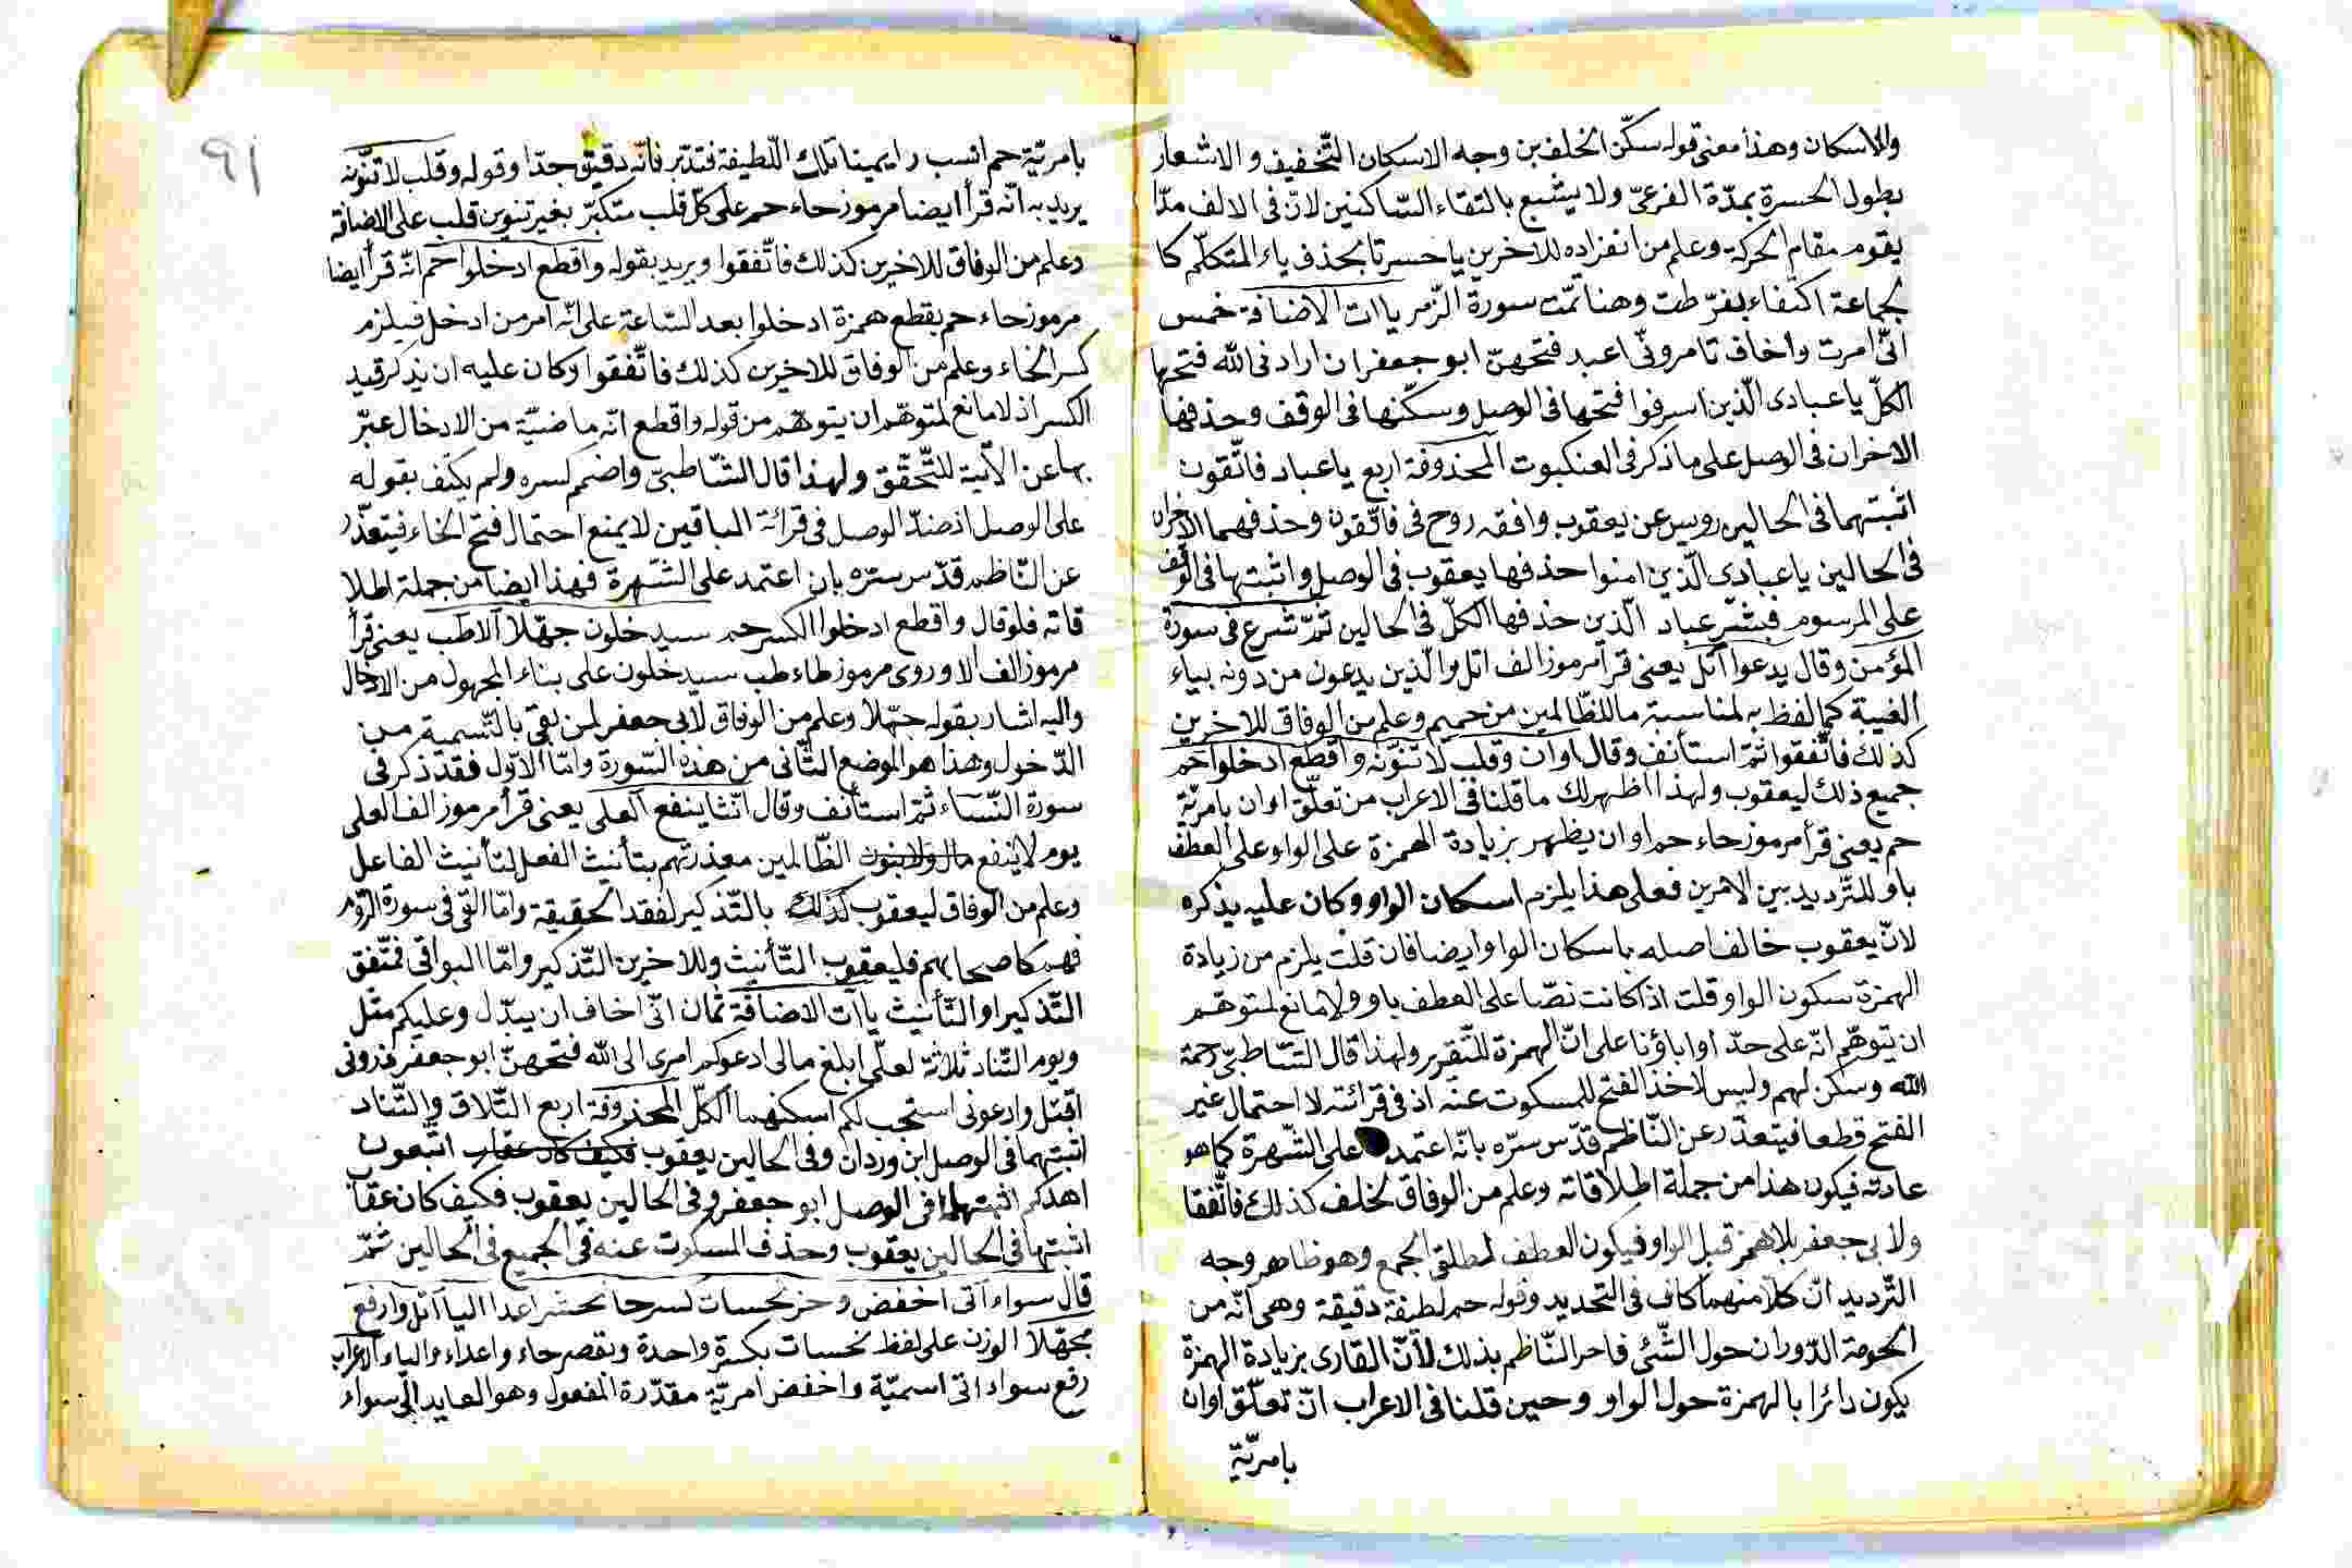 والاسكان وهذا معنى قوله سكّن الخلف بن وجه الاسكان التّخفيف والاشعار
بطول الحسرة بمدّة الفرعىّ ولا يشبع بالتقاء السّاكنين لانّ فى الالف مدّا
يقوم مقام الحركة وعلم من انفراده للاخرين يا حسرتا بحذف ياء المتكلّم كا
لجماعة اكتفاء بفرّ طت وهنا تمّت سورة الزّمر ياات الاضافة خمس
انّى امرت واخاف تامرونّى اعبد فتحهنّ ابو جعفر ان ارادنى الله فتحها
الكلّ يا عبادى الّذين اسرفوا فتحها فى الوصل وسكّنها فى الوقف وحذفها
الاخران فى الوصل على ما ذكر فى العنكبوت المحذوفة اربع يا عباد فاتّقون
اثبتهما فى الحالين رويس عن يعقوب وافقه روح فى فاتّقون وحذفهما الاخران
فى الحالين يا عبادى الّذين امنوا حذفها يعقوب فى الوصل واثبتها فى الوقف
على المرسوم فبشّر عباد الّذين حذفها الكلّ فى الحالين ثمّ شرع فى سورة
المؤمن وقال يدعوا اتل يعنى قرأ مرموز الف اتل والّذين يدعون من دونه بياء
الغيبة كما لفظ به لمناسبة ما للظّالمين من حميم وعلم من الوفاق للاخرين
كذلك فاتّفقوا ثمّ استأنف وقال اوان وقلب لا تنوّنه واقطع ادخلوا حم
جميع ذلك ليعقوب ولهذا اظهر لك ما قلنا فى الاعراب من تعلّق اوان بامريّة
حم يعنى قرأ مرموز حاء حم اوان يظهر بزيادة الهمزة على الواو على العطف
باو للتّرديد بين الامرين فعلى هذا يلزم اسكان الواو وكان عليه يذكره
لانّ يعقوب خالف اصله باسكان الواو ايضا فان قلت يلزم من زيادة
الهمزة سكون الواو قلت اذا كانت نصّا على العطف باو ولا مانع لمتوهّم
ان يتوهّم انّه على حدّ اواباؤنا على انّ الهمزة للتّقرير ولهذا قال الشّاطبىّ رحمة
الله وسكن لهم وليس لاخذ الفتح للمسكوت عنه اذ فى قرائته لا احتمال غير
الفتح قطعا فيتعذّر عن النّاظم قدّس سرّه بانّه اعتمد على الشّهرة كما هو
عادته فيكون هذا من جملة اطلاقاته وعلم من الوفاق لخلف كذلك فاتّفقا
ولابى جعفر بلا همز قبل الواو فيكون العطف لمطلق الجمع وهو ظاهر وجه
التّرديد انّ كلّا منهما كاف فى التحديد وقوله حم لطيفة دقيقة وهى انّه من
الحومة الدّوران حول الشّئ فاحر النّاظم بذلك لأنّ القارى بزيادة الهمزة
يكون دائرا بالهمزة حول الواو وحين قلنا فى الاعراب انّ تعلّق اوان
بامريّة
٩١
بامريّة حم انسب رايمينا تلك اللّطيفة فتدبّر فانّه دقيق جدّا وقوله وقلب لا تنوّنه
يريد به انّه قرأ ايضا مرموز حاء حم على كلّ قلب متكبّر بغير تنوين قلب على الاضافة
وعلم من الوفاق للاخرين كذلك فاتّفقوا ويريد بقوله واقطع ادخلوا حم انّه قرأ ايضا
مرموز حاء حم بقطع همزة ادخلوا بعد السّاعة على انّه امر من ادخل فيلزم
كسر الخاء وعلم من الوفاق للاخرين كذلك فاتّفقوا وكان عليه ان يذكر قيد
الكسر اذ لا مانع لمتوهّم ان يتوهّم من قوله واقطع انّه ماضيّة من الادخال عبّر
بها عن الآتية للتّحقّق ولهذا قال الشّاطبىّ واضمم كسره ولم يكتف بقوله
على الوصل اذ ضدّ الوصل فى قرائة الباقين لا يمنع احتمال فتح الخاء فيتعذّر
عن النّاظم قدّس سرّه بان اعتمد على الشّهرة فهذا ايضا من جملة اطلا
قاته فلو قال واقطع ادخلوا اكسر حم سيدخلون جهّلا الا طب يعنى قرأ
مرموز الف الا وروى مرموز طاء طب سيدخلون على بناء المجهول من الادخال
واليه اشار بقوله جهّلا وعلم من الوفاق لابى جعفر لمن بقى بالتّسمية من
الدّخول وهذا هو الموضع الثّانى من هذه السّورة وامّا الاوّل فقد ذكر فى
سورة النّساء ثمّ استأنف وقال انّثا ينفع العلى يعنى قرأ مرموز الف العلى
يوم لا ينفع مال ولا بنون الظّالمين معذرتهم بتأنيث الفعل لتأنيث الفاعل
وعلم من الوفاق ليعقوب كذلك بالتّذكير لفقد الحقيقة وامّا الّتى فى سورة الرّوم
فهم كاصحابهم فليعقوب التّأنيث وللاخرين التّذكير وامّا البواقى فمتّفق
التّذكير او التّأنيث ياات الاضافة ثمان انّى اخاف ان يبدّل وعليكم مثل
ويوم التّناد ثلاثة لعلّى ابلغ مالى ادعوكم امرى الى الله فتحهنّ ابو جعفر ذرونى
اقتل وادعونى استجب لكم اسكنهما الكلّ المحذوفة اربع التّلاق والتّناد
اثبتهما فى الوصل ابن وردان وفى الحالين يعقوب فكيف كان عقاب اتّبعون
اهدكم اثبتها فى الوصل ابو جعفر وفى الحالين يعقوب فكيف كان عقاب
اثبتها فى الحالين يعقوب وحذف المسكوت عنه فى الجميع فى الحالين ثمّ
قال سواء اتى اخفض وحز نحسات كسر حا نحشر اعدا اليا اتل وارفع
مجهّلا الوزن على لفظ نحسات بكسرة واحدة وبقصر حاء واعداء والياء الاعراب
رفع سواء اتى اسميّة واخفض امريّة مقدّرة المفعول وهو العايد الى سواء